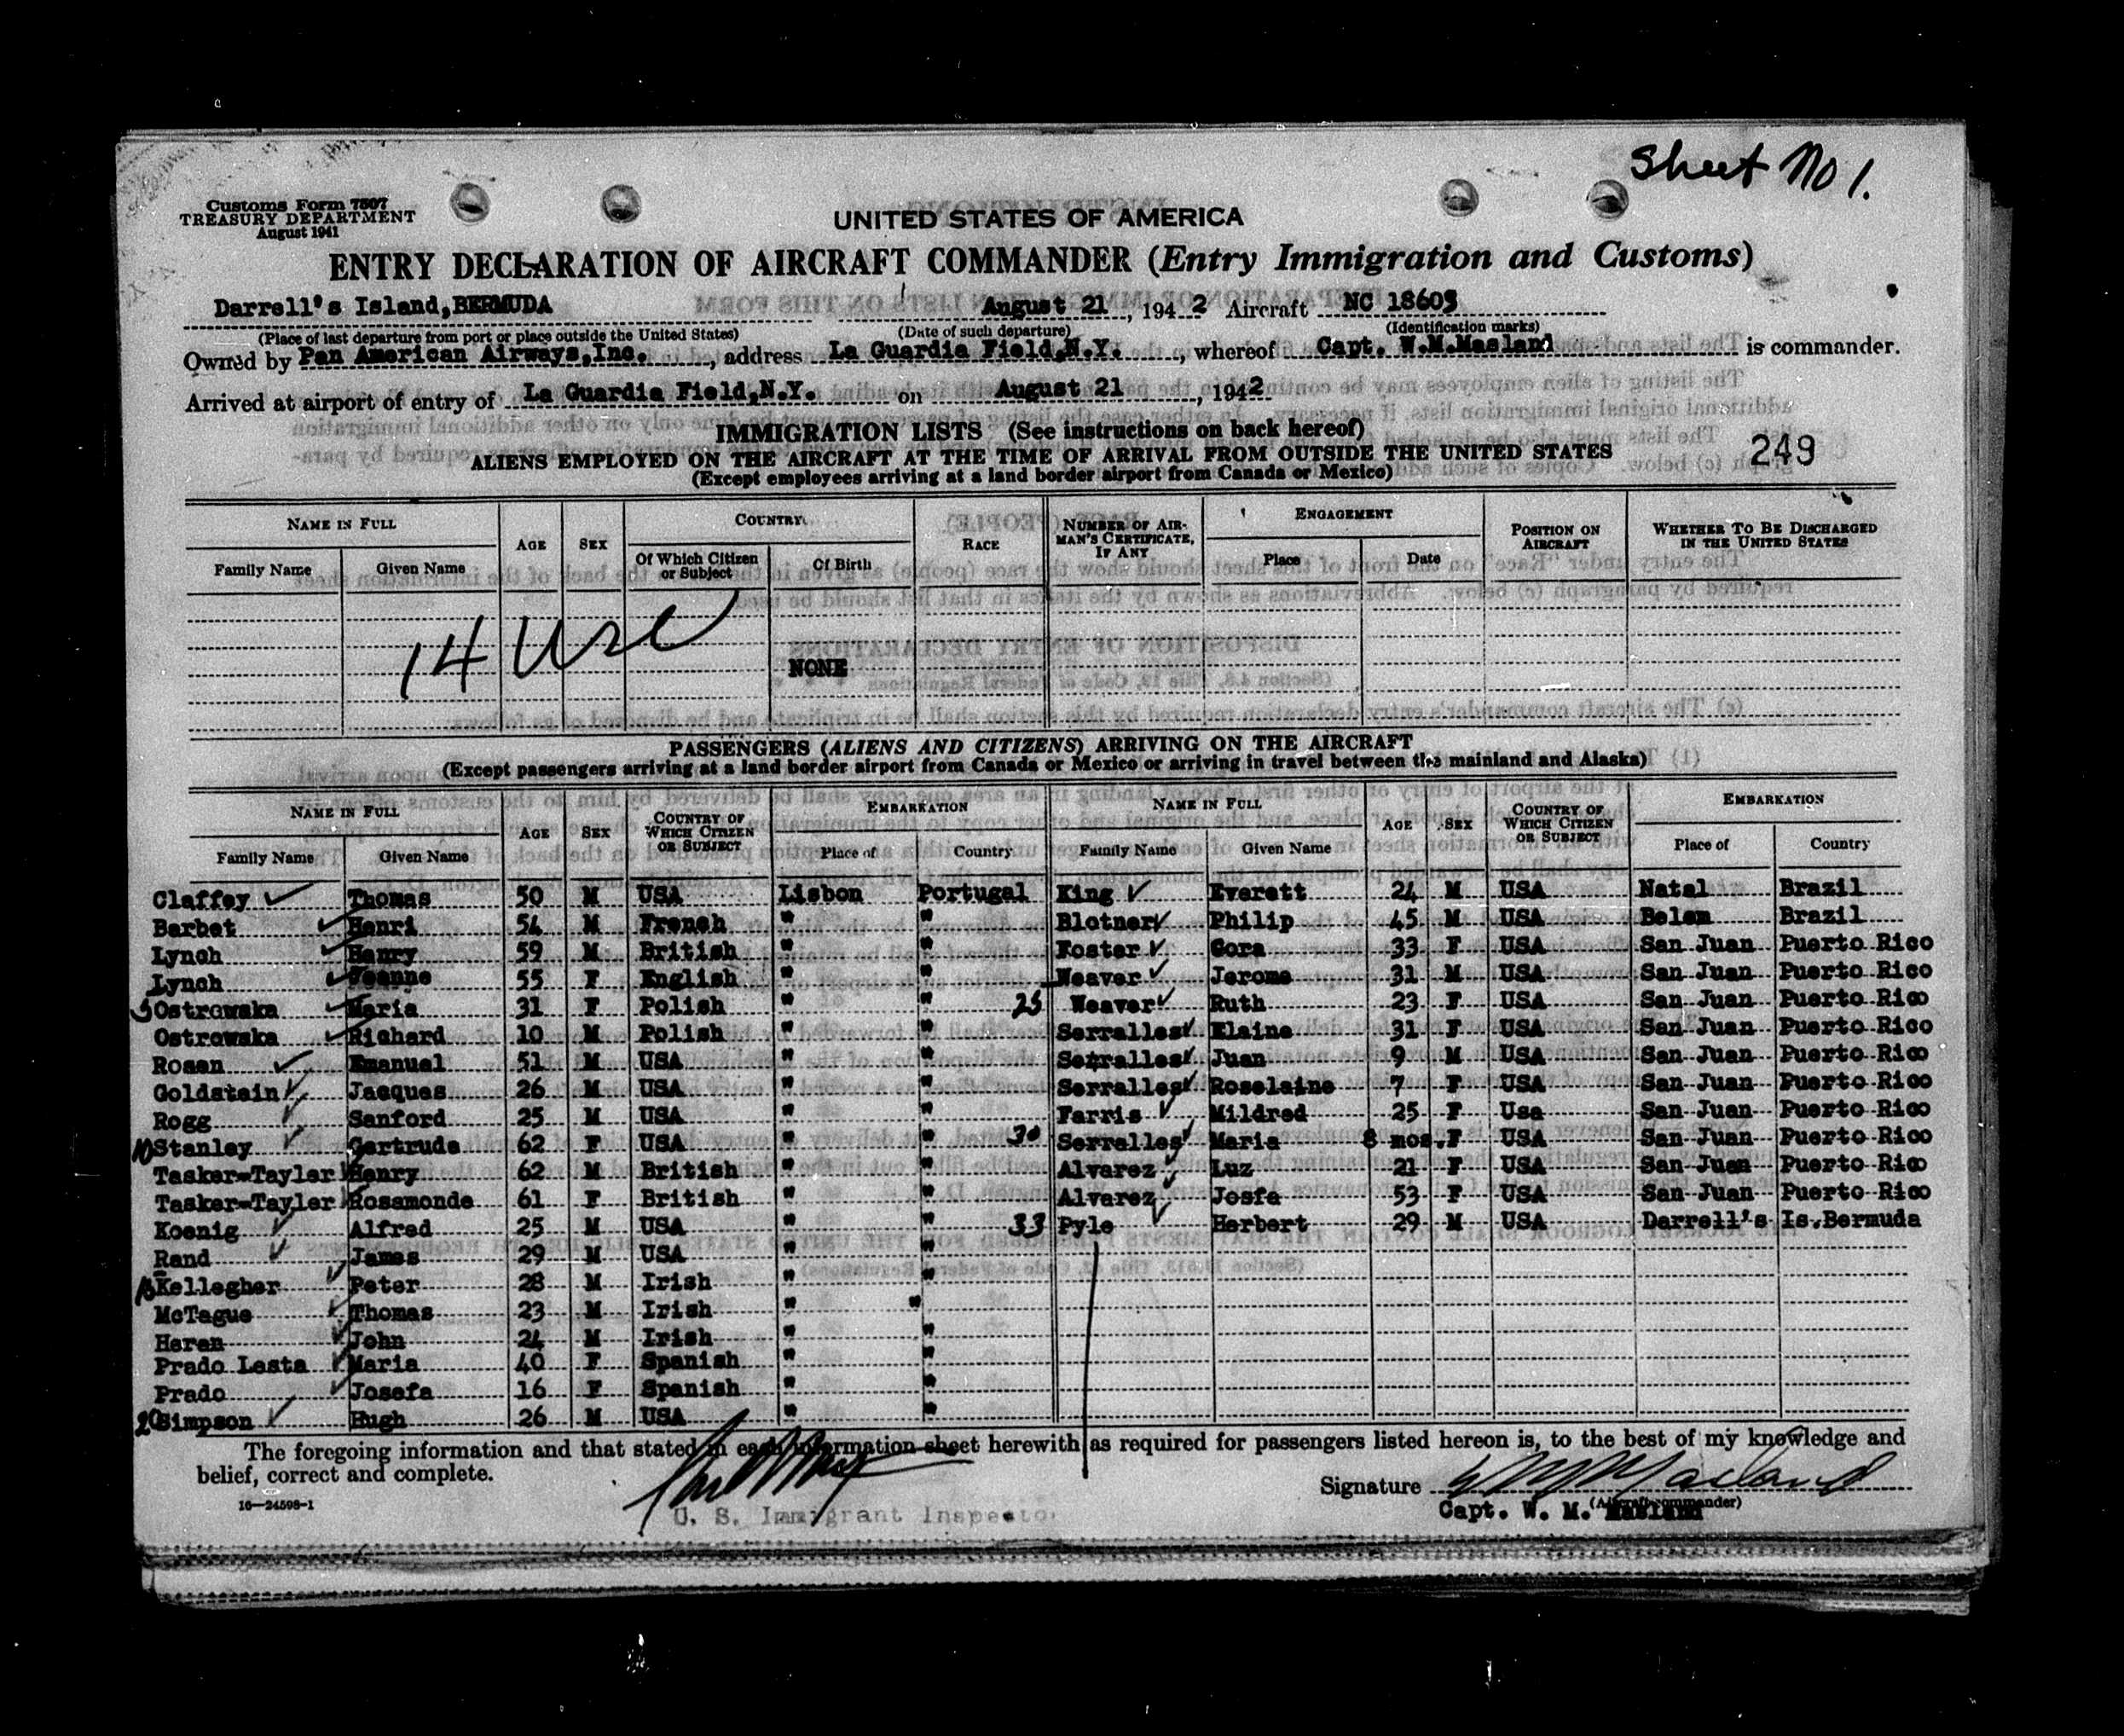 Sheet No 1.
Customs Form 7507
TREASURY DEPARTMENT
August 1941
UNITED STATES OF AMERICA
ENTRY DECLARATION OF AIRCRAFT COMMANDER (Entry Immigration and Customs)
Darrell's Island, BERMUDA August 21, 1942 Aircraft NC 18605
(Place of last departure from port or place outside the United States) (Date of such departure) (Identification marks)
Owned by Pan American Airways, Inc., address La Guardia Field, N.Y., whereof Capt. W.M. Masland is commander.
Arrived at airport of entry of La Guardia Field, N.Y. on August 21, 1942
IMMIGRATION LISTS (See instructions on back hereof)
249
ALIENS EMPLOYED ON THE AIRCRAFT AT THE TIME OF ARRIVAL FROM OUTSIDE THE UNITED STATES
(Except employees arriving at a land border airport from Canada or Mexico)
NAME IN FULL AGE SEX COUNTRY RACE NUMBER OF AIRMAN'S CERTIFICATE, IF ANY ENGAGEMENT POSITION ON AIRCRAFT WHETHER TO BE DISCHARGED IN THE UNITED STATES
Family Name Given Name Of Which Citizen or Subject Of Birth Place Date
14
NONE
PASSENGERS (ALIENS AND CITIZENS) ARRIVING ON THE AIRCRAFT
(Except passengers arriving at a land border airport from Canada or Mexico or arriving in travel between the mainland and Alaska)
NAME IN FULL AGE SEX COUNTRY OF WHICH CITIZEN OR SUBJECT EMBARKATION NAME IN FULL AGE SEX COUNTRY OF WHICH CITIZEN OR SUBJECT EMBARKATION
Family Name Given Name Place of Country Family Name Given Name Place of Country
Claffey Thomas 50 M USA Lisbon Portugal King Everett 24 M USA Natal Brazil
Barbet Henri 54 M French " " Blotner Philip 45 M USA Belem Brazil
Lynch Henry 59 M British " " Foster Cora 33 F USA San Juan Puerto Rico
Lynch Jeanne 55 F English " " Weaver Jerome 31 M USA San Juan Puerto Rico
5 Ostrowska Maria 31 F Polish " " 25 Weaver Ruth 23 F USA San Juan Puerto Rico
Ostrowska Richard 10 M Polish " " Serralles Elaine 31 F USA San Juan Puerto Rico
Rosen Emanuel 51 M USA " " Serralles Juan 9 M USA San Juan Puerto Rico
Goldstein Jacques 26 M USA " " Serralles Roselaine 7 F USA San Juan Puerto Rico
Rogg Sanford 25 M USA " " Farris Mildred 25 F Usa San Juan Puerto Rico
10 Stanley Gertrude 62 F USA " " 30 Serralles Maria 8 mos. F USA San Juan Puerto Rico
Tasker-Tayler Henry 62 M British " " Alvarez Luz 21 F USA San Juan Puerto Rico
Tasker-Tayler Rosamonde 61 F British " " Alvarez Josfa 53 F USA San Juan Puerto Rico
Koenig Alfred 25 M USA " " 33 Pyle Herbert 29 M USA Darrell's Is. Bermuda
Rand James 29 M USA " "
15 Kellegher Peter 28 M Irish " "
McTague Thomas 23 M Irish " "
Heren John 24 M Irish " "
Prado Lesta Maria 40 F Spanish " "
Prado Josefa 16 F Spanish " "
20 Simpson Hugh 26 M USA " "
The foregoing information and that stated in each information sheet herewith as required for passengers listed hereon is, to the best of my knowledge and
belief, correct and complete.
Signature W M Masland
16—24598-1
U. S. Immigrant Inspector
(Aircraft commander)
Capt. W. M. Masland